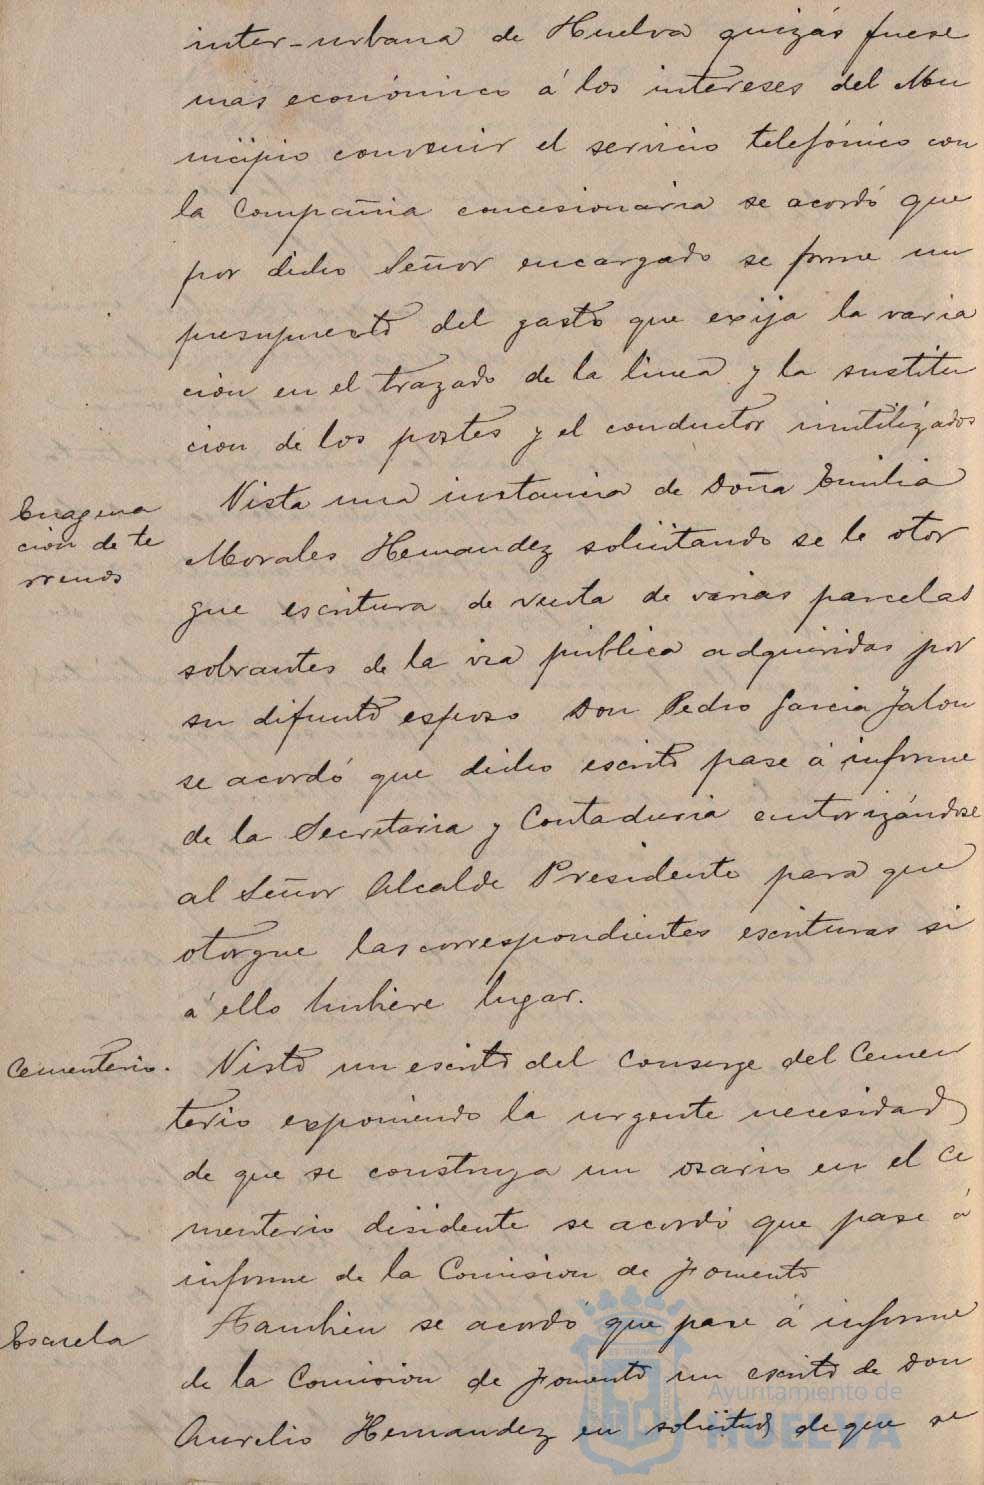 inter-urbana de Huelva quizás fuese
mas económico á los intereses del Mu
nicipio convenir el servicio telefónico con
la Compañia concesionaria se acordó que
por dicho Señor encargado se forme un
presupuesto del gasto que exija la varia
cion en el trazado de la linea y la sustitu
cion de los postes y el conductor inutilizados
Enagena
cion de te
rrenos
Vista una instancia de Doña Emilia
Morales Hernandez solicitando se le otor
gue escritura de venta de varias parcelas
sobrantes de la via pública adquiridas por
su difunto esposo Don Pedro Garcia Jalon
se acordó que dicho escrito pase á informe
de la Secretaria y Contaduria autorizándose
al Señor Alcalde Presidente para que
otorgue las correspondientes escrituras si
á ello hubiere lugar.
Cementerio.
Visto un escrito del Conserge del Cemen
terio exponiendo la urgente necesidad
de que se construya un osario en el Ce
menterio disidente se acordó que pase á
informe de la Comision de Fomento
Escuela
Tambien se acordó que pase á informe
de la Comision de Fomento un escrito de Don
Aurelio Hernandez en solicitud de que se
Ayuntamiento de
HUELVA